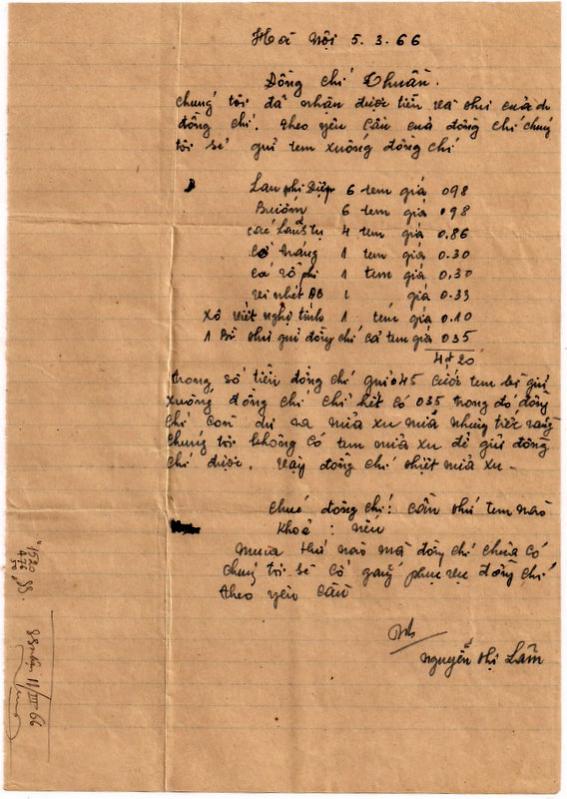 Hà Nội 5.3.66
Đồng chí Thuần.
chúng tôi đã nhận được tiền và thư của đ
đồng chí. theo yêu cầu của đồng chí chúng
tôi sẽ gửi tem xuống đồng chí
Lan phi Điệp 6 tem giá 098
Bướm 6 tem giá 098
các Lănh tụ 4 tem giá 0.86
1 tem giá 0.30
cá rô phi 1 tem giá 0,30
1 giá 0.33
Xô viết nghệ tĩnh 1 tem giá 0.10
1 Bì thư gửi đồng chí cả tem giá 035
4,20
trong số tiền đồng chí gửi 045 cước tem để gửi
xuống đồng chí chỉ hết có 035 trong đó đồng
chí còn dư ra nửa xu mà nhưng tiếc rằng
chúng tôi không có tem nửa xu để gửi đồng
chí được. vậy đồng chí thiệt nửa xu -
chúc đồng chí: cần thứ tem nào
khoẻ: nếu
mua thứ nào mà đồng chí chưa có
chúng tôi sẽ cố gắng phục vụ đồng chí
theo yêu cầu
nguyễn thị Lâm
11/III 66